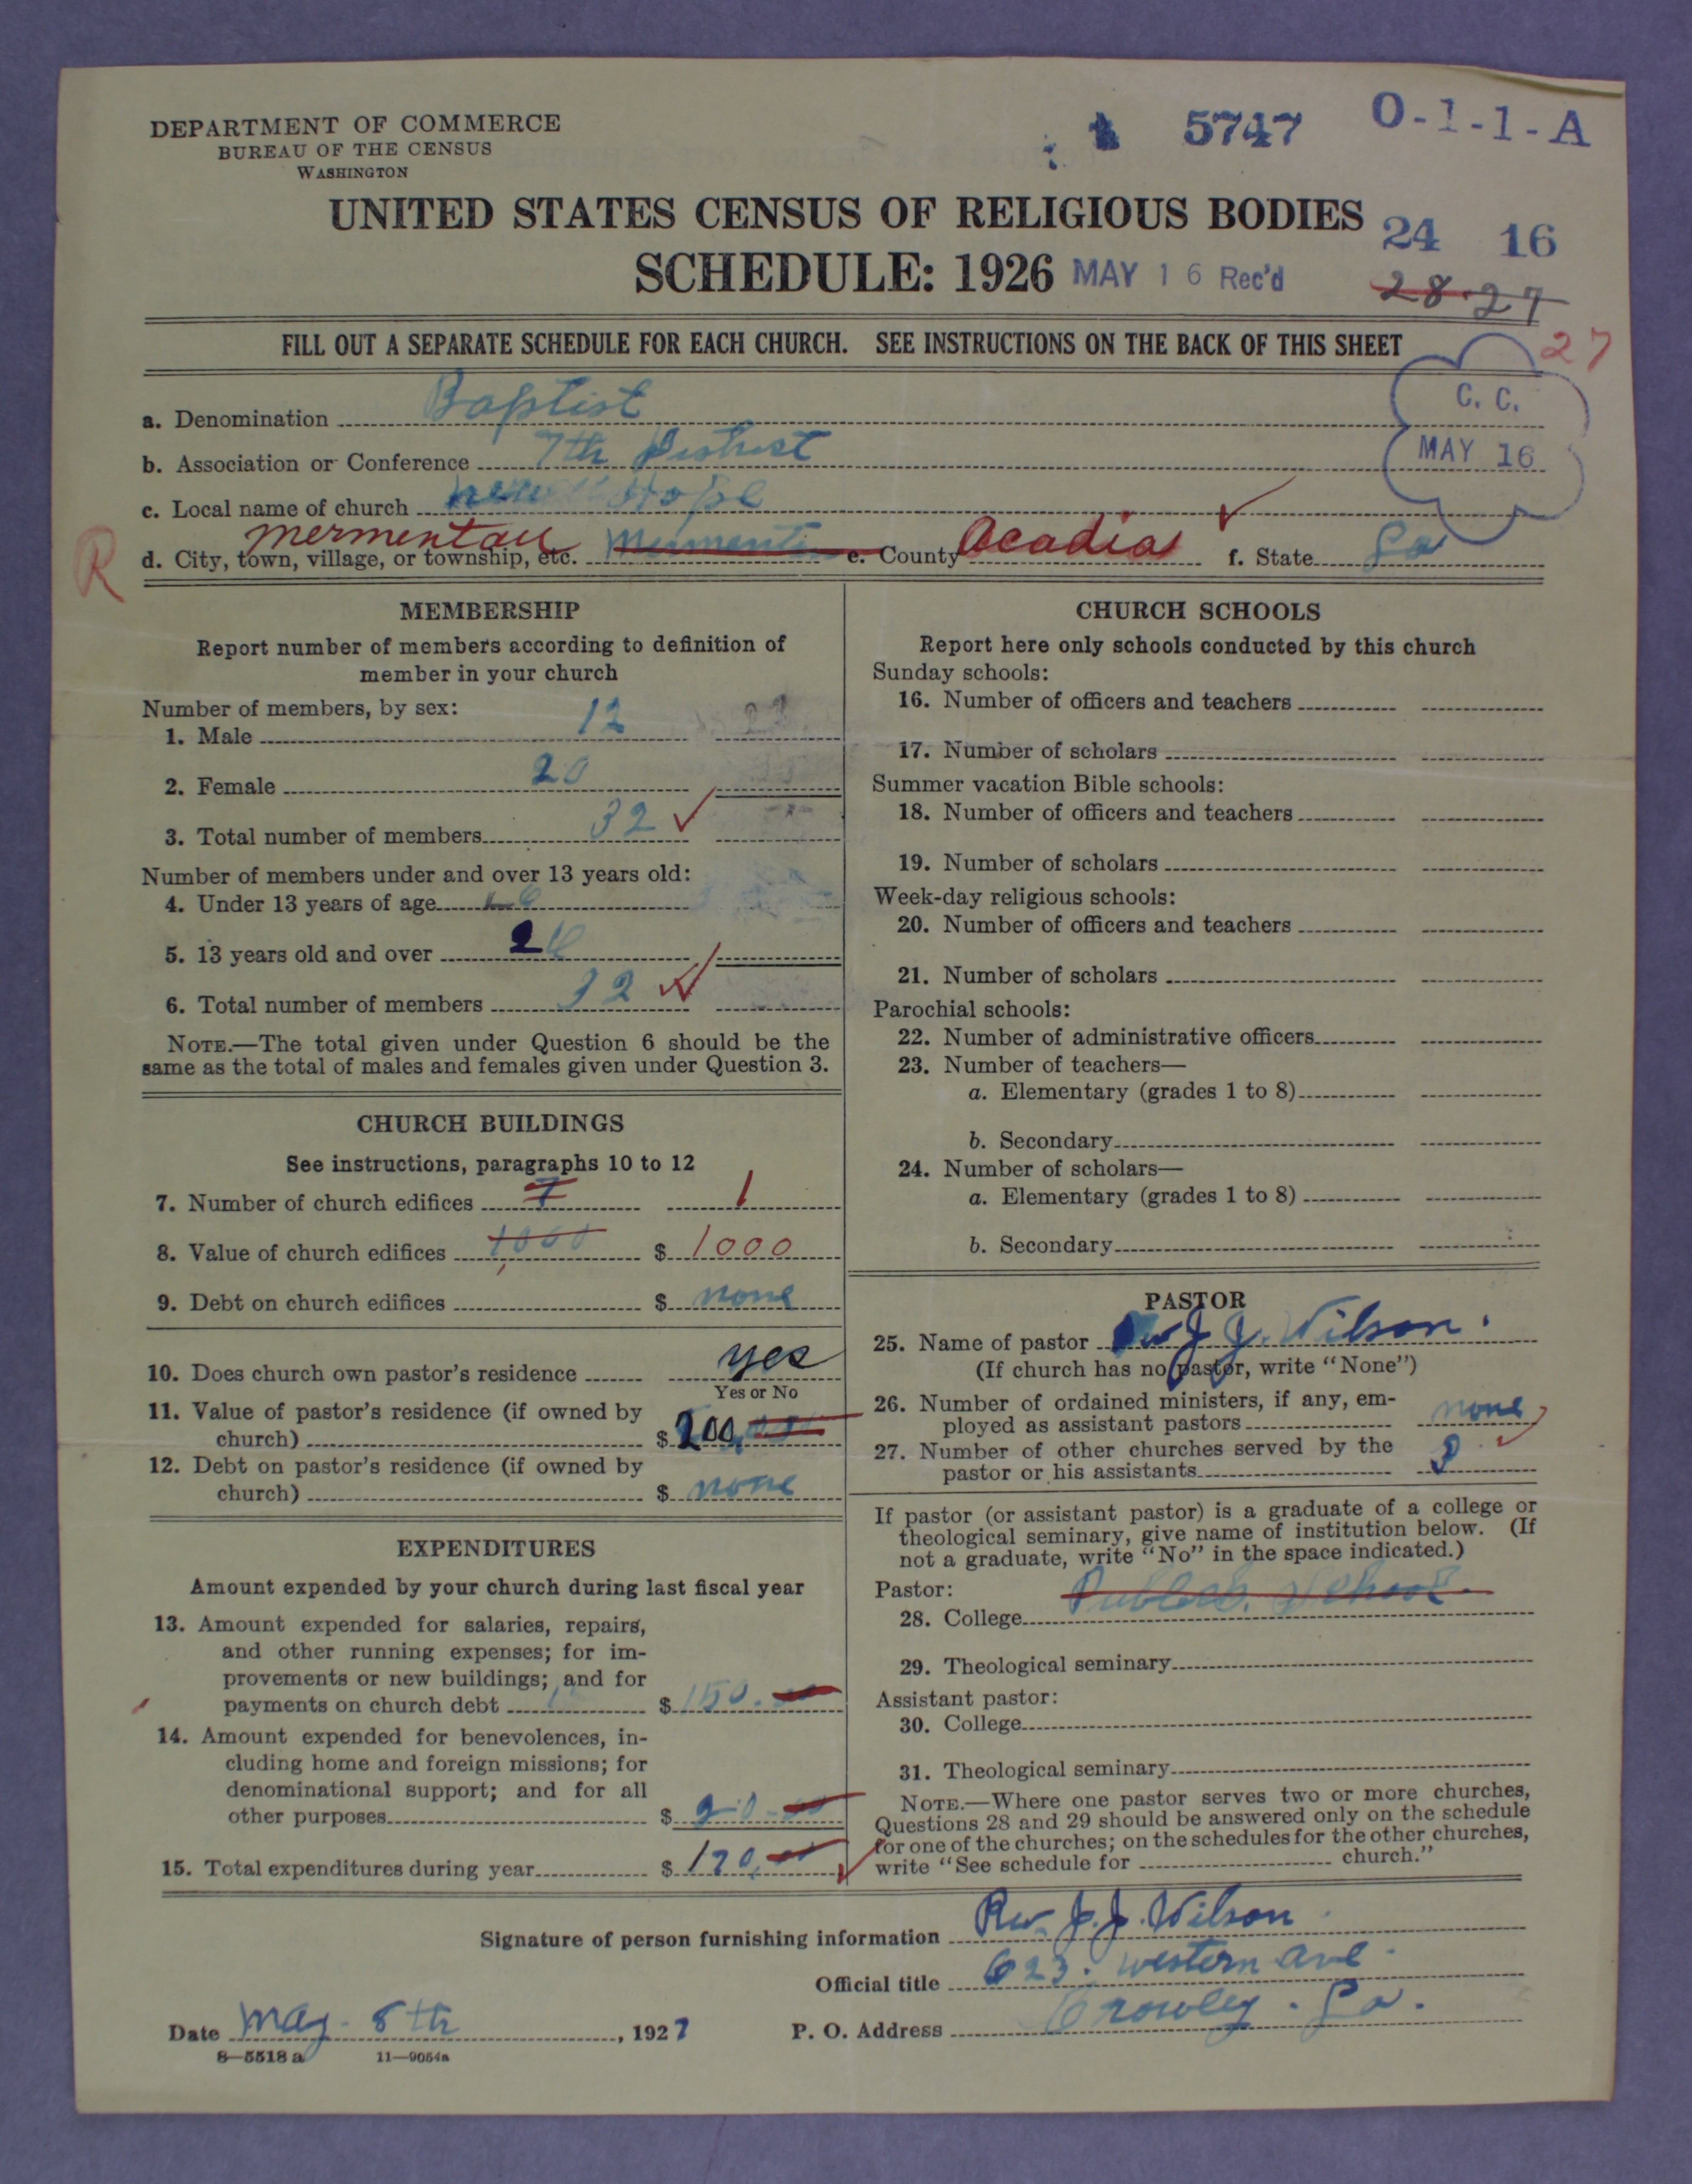 DEPARTMENT OF COMMERCE
BUREAU OF THE CENSUS
WASHINGTON
5747 O-1-1-A
UNITED STATES CENSUS OF RELIGIOUS BODIES
24 16
SCHEDULE: 1926 MAY 16 Rec'd
28-27
27
FILL OUT A SEPARATE SCHEDULE FOR EACH CHURCH. SEE INSTRUCTIONS ON THE BACK OF THIS SHEET
C. C.
MAY 16
a. Denomination Baptist
b. Association or Conference 7th District
c. Local name of church new Hope
R
d. City, town, village, or township, etc. mermentau e. County Acadia f. State La
MEMBERSHIP
Report number of members according to definition of
member in your church
Number of members, by sex:
1. Male 12
2. Female 20
3. Total number of members 32
Number of members under and over 13 years old:
4. Under 13 years of age 6
5. 13 years old and over 26
6. Total number of members 32
NOTE.—The total given under Question 6 should be the
same as the total of males and females given under Question 3.
CHURCH BUILDINGS
See instructions, paragraphs 10 to 12
7. Number of church edifices 1
8. Value of church edifices 1000 $ 1000
9. Debt on church edifices $ none
10. Does church own pastor's residence yes
Yes or No
11. Value of pastor's residence (if owned by
church) $ 200
12. Debt on pastor's residence (if owned by
church) $ none
EXPENDITURES
Amount expended by your church during last fiscal year
13. Amount expended for salaries, repairs,
and other running expenses; for im-
provements or new buildings; and for
payments on church debt $ 150.00
14. Amount expended for benevolences, in-
cluding home and foreign missions; for
denominational support; and for all
other purposes $ 20.00
15. Total expenditures during year $ 170.00
CHURCH SCHOOLS
Report here only schools conducted by this church
Sunday schools:
16. Number of officers and teachers
17. Number of scholars
Summer vacation Bible schools:
18. Number of officers and teachers
19. Number of scholars
Week-day religious schools:
20. Number of officers and teachers
21. Number of scholars
Parochial schools:
22. Number of administrative officers
23. Number of teachers—
a. Elementary (grades 1 to 8)
b. Secondary
24. Number of scholars—
a. Elementary (grades 1 to 8)
b. Secondary
PASTOR
25. Name of pastor Rev J. J. Wilson.
(If church has no pastor, write "None")
26. Number of ordained ministers, if any, em-
ployed as assistant pastors none
27. Number of other churches served by the
pastor or his assistants
If pastor (or assistant pastor) is a graduate of a college or
theological seminary, give name of institution below. (If
not a graduate, write "No" in the space indicated.)
Pastor:
28. College School.
29. Theological seminary
Assistant pastor:
30. College
31. Theological seminary
NOTE.—Where one pastor serves two or more churches,
Questions 28 and 29 should be answered only on the schedule
for one of the churches; on the schedules for the other churches,
write "See schedule for church."
Signature of person furnishing information Rev. J. J. Wilson
Official title 623. western ave.
Date May 8th, 1927 P. O. Address Crowley. La.
8—5518 a 11—9054a